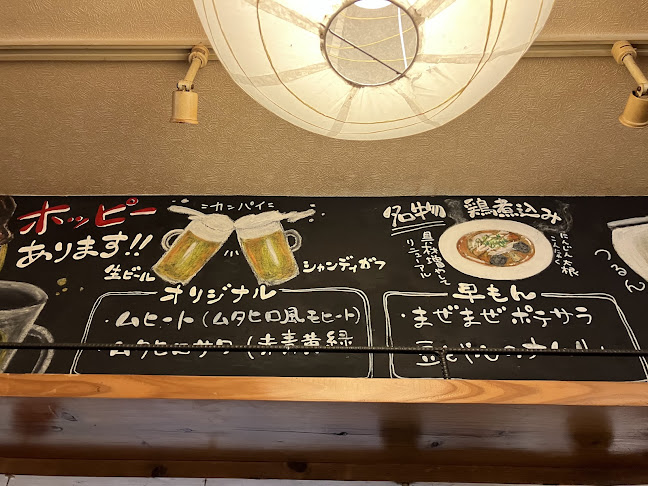 ホッピー
あります!!
カンパイ
生ビール
シャンディガフ
オリジナル
・ムヒート(ムタヒロ風モヒート)
ムタヒロサワー(赤青黄緑
名物 鶏煮込み
具材増やして
リニューアル
にんじん大根
こんにゃく
早もん
・まぜまぜポテサラ
つるん